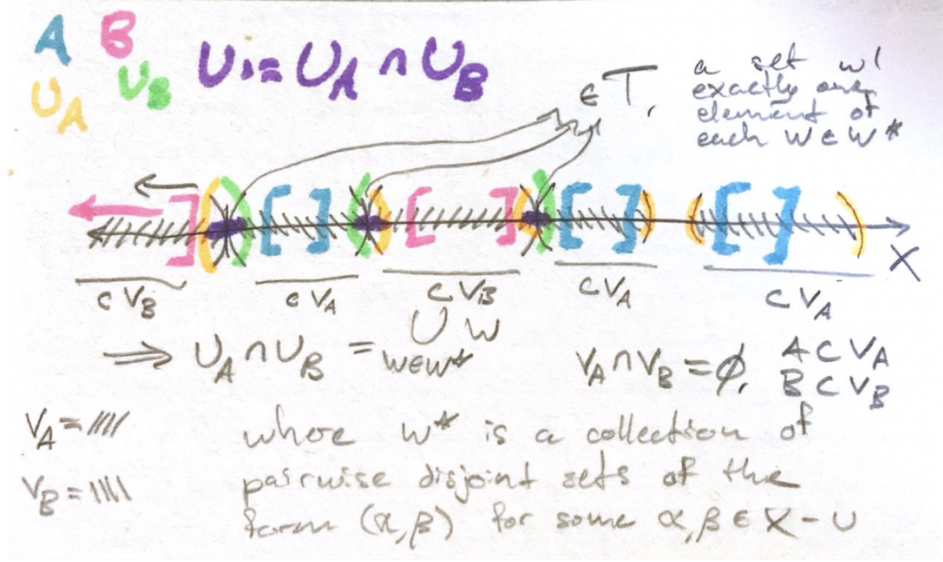 A B
U_A U_B U := U_A ∩ U_B
∈ T, a set w/
exactly one
element of
each W ∈ W*
X
⊂ V_B ⊂ V_A ⊂ V_B ⊂ V_A ⊂ V_A
⟹ U_A ∩ U_B = ∪ W
W∈W*
V_A ∩ V_B = ∅, A ⊂ V_A
B ⊂ V_B
V_A = //// where W* is a collection of
V_B = \\\\ pairwise disjoint sets of the
form (α,β) for some α,β ∈ X - U